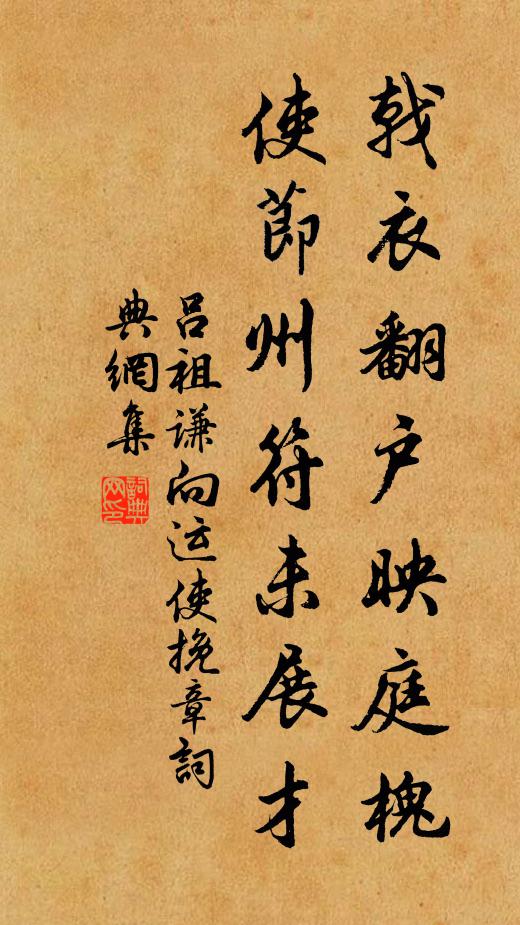 戟衣翻户映庭槐
使節州符未展才
吕祖謙向运使挽章詞
典網集
詞典
网印